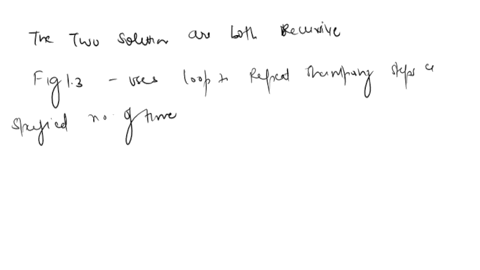 The Two Solution are both Recursive
Fig 1.3 - uses loop to Repeat steps a
Specified no. of time